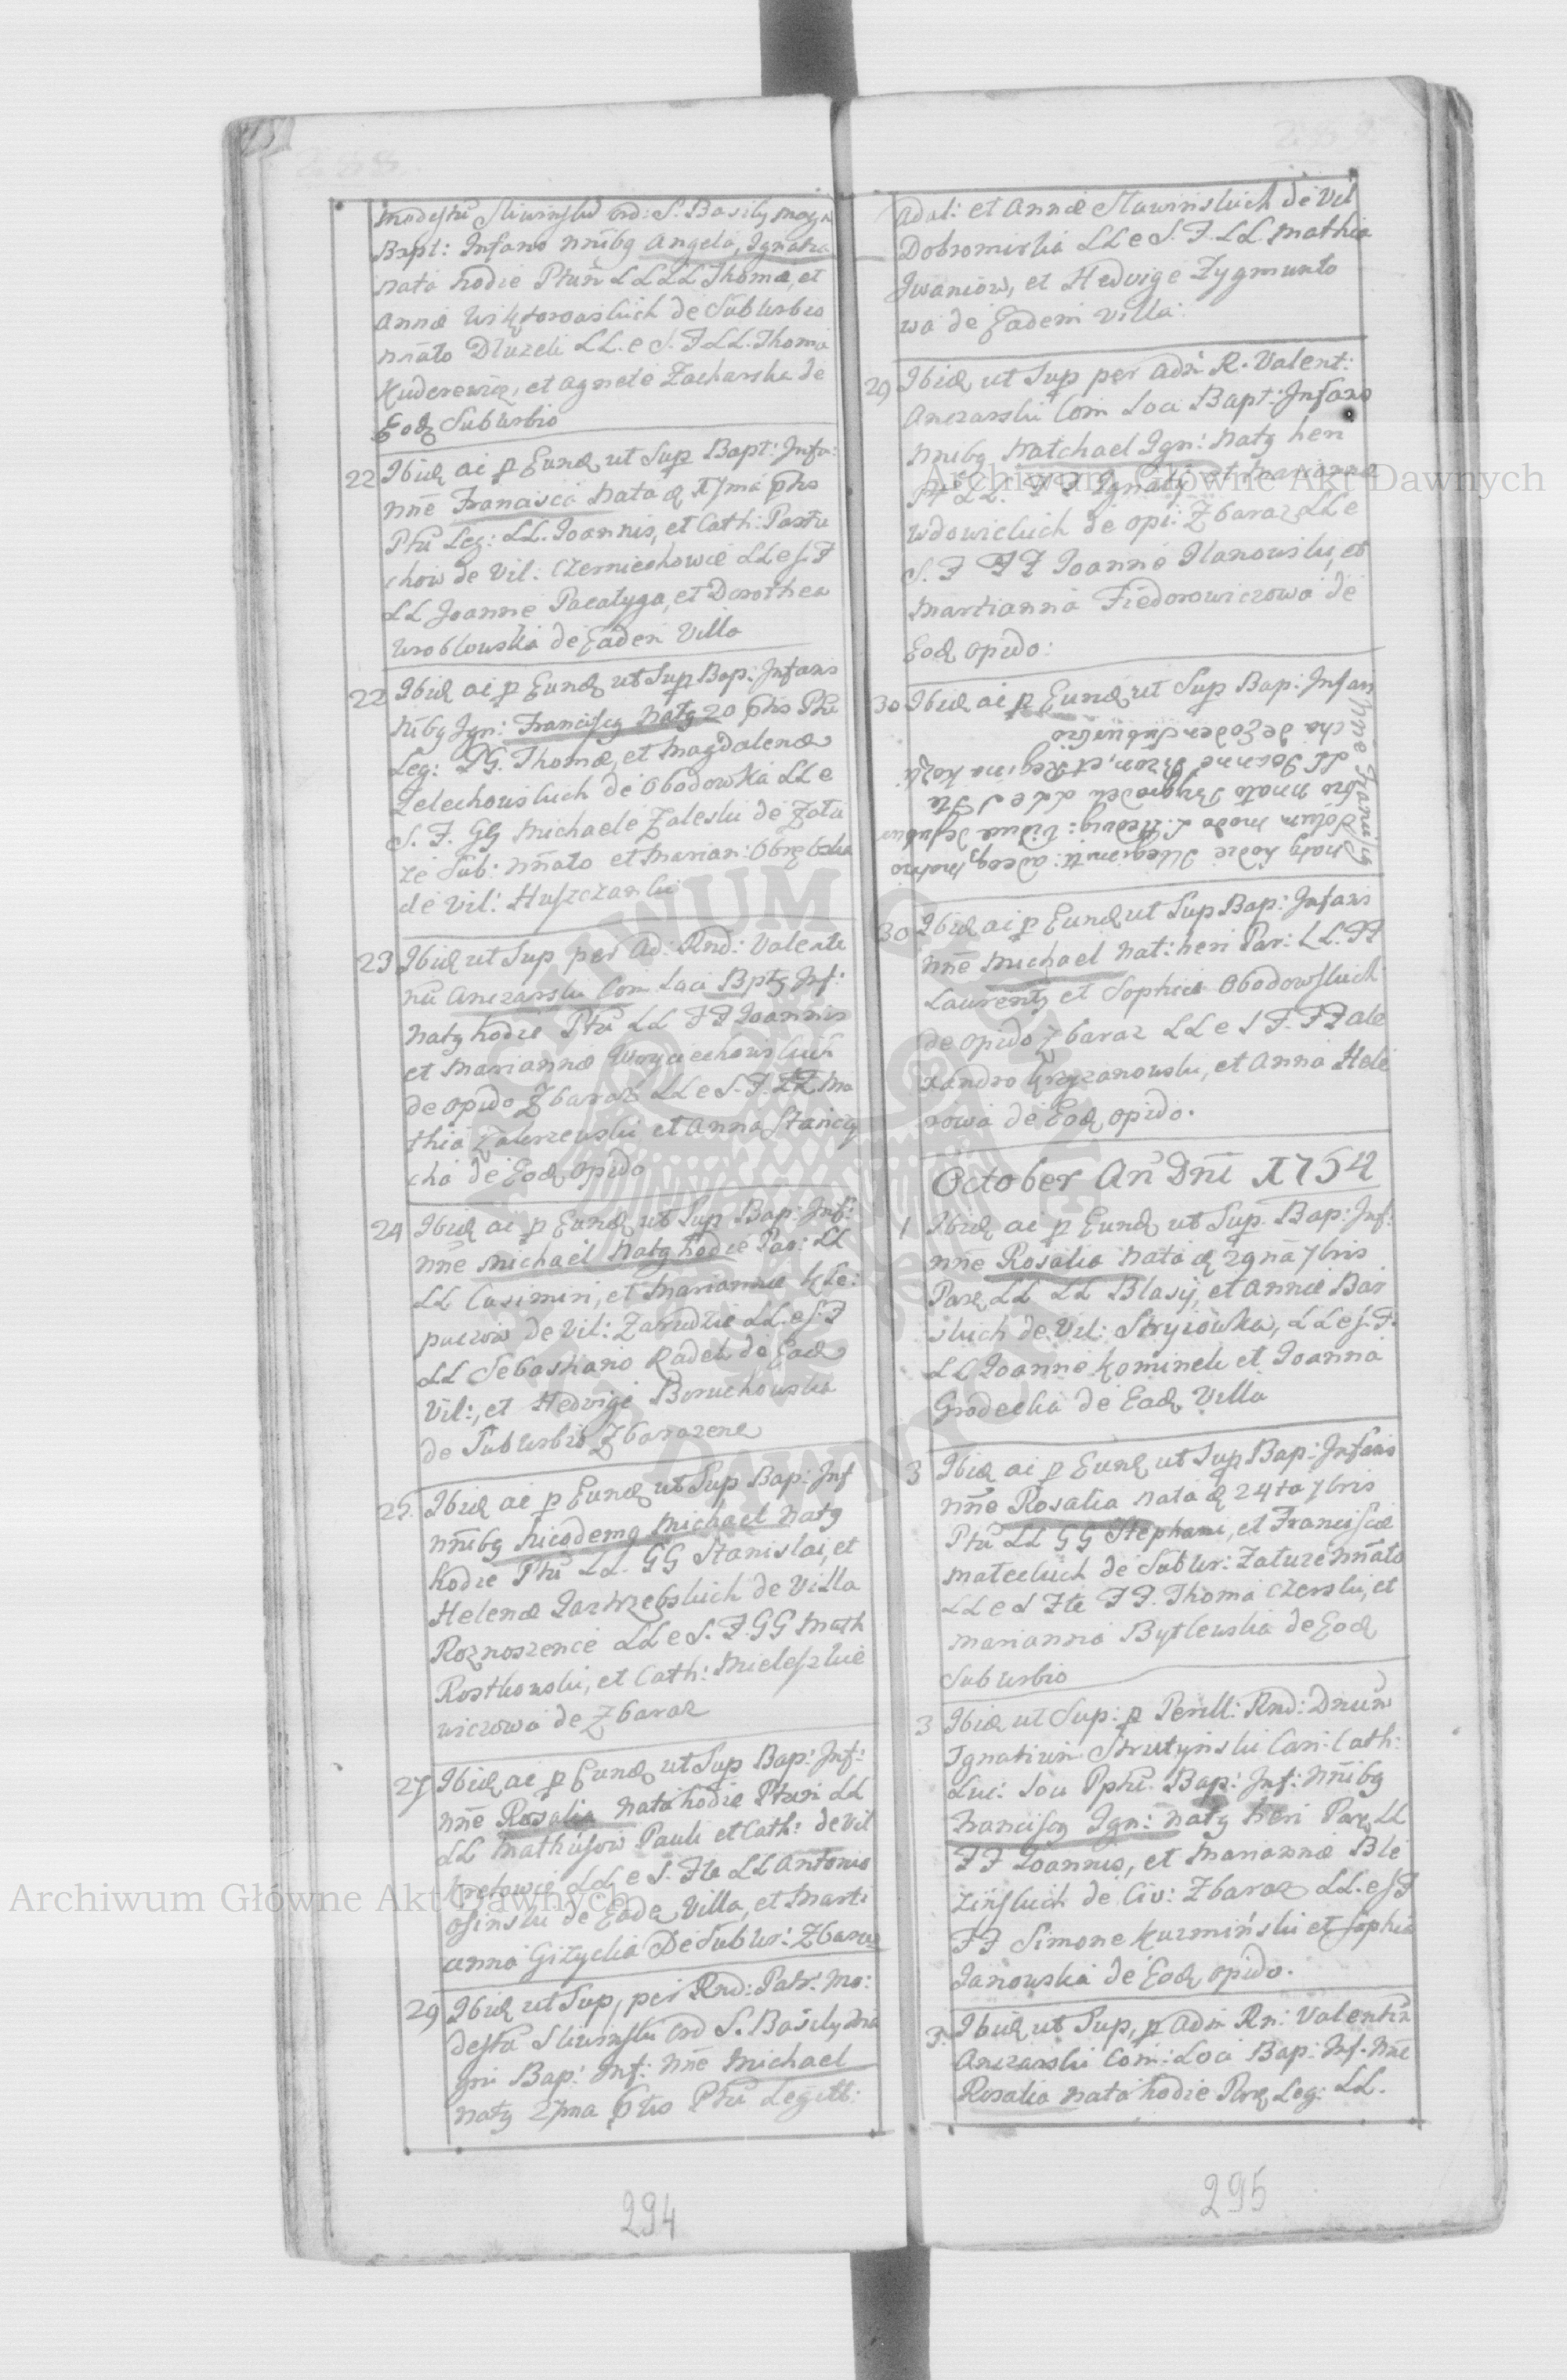 Modestū Sliwinski Ord: S. Basily Mag
Bapt: Infans nnibq Angela, Ignatia
nata hodie Ptum LLLL Thomæ, et
Annæ de Suburbio
nnato Dluzek LL. e S. F LL. Thoma
Kuderewicz, et Agnete Zacharska de
Eodq Suburbio
22 Ibidq ac p Eundq ut Sup Bapt: Infa:
nne Francisca Nata q 17ma phs
Ptū Leg: LL. Joannis, et Cath: Pastu
chow de Vil: Czerniechowce LL e S. F
LL Joanne Pacatyga, et Dorothea
Wroblowska de Eadem Villa
22 Ibidq ac p Eundq ut Sup Bap: Infans
nibq Ign: Franciscq Natq 20 phs Ptū
Leg: GG. Thomæ, et Magdalenæ
Zelechowskich de Obodowka LL e
S. F. GG Michaele Zaleski de Zału
ze Sub: nnato et Marian: Obrębska
de Vil: Huszczanki
23 Ibidq ut Sup per Ad: Rnd: Valenti
nū Anczarski Com Loci Bptq Inf:
Natq hodie Ptū LL FF Joannis
et Mariannæ Woyciechowskich
de opido Zbaraz LL e S. F. FF Ma
thia Zakrzewski et Anna Stanczy
cha de Eodq opido
24 Ibidq ac p Eundq ut Sup Bap: Inf:
nne Michael Natq hodie Par: LL
LL Casimiri, et Mariannæ Kle:
paczow de Vil: Zarudzie LL. e S. F
LL Sebastiano Radek de Eadq
Vil:, et Hedvige Boruchowska
de Suburbio Zbarazene
25. Ibidq ac p Eundq ut Sup Bap: Inf
nnibq Nicodemq Michael Natq
hodie Ptū LL. GG Stanislai, et
Helenæ Jastrzębskich de Villa
Roznoszence LL e S. F. GG Math
Rostkowski, et Cath: Mieleszkie
wiczowa de Zbaraz
27 Ibidq ac p Eundq ut Sup Bap: Inf:
nne Rosalia Nata hodie Ptum LL
LL Mathusow Pauli et Cath: de Vil
Kretowce LL e S. Fte LL Antonio
Osinski de Eade Villa, et Marti
anna Gizycka De Subur: Zbaraz
29 Ibidq ut Sup, per Rnd: Patr: Mo:
destū Sliwinski Ord S. Basily Ma
gni Bap: Inf: Nne Michael
Natq 27ma phs Ptū Legitt:
294
Adal: et Annæ Sławinskich de Vil
Dobromirka LL e S. F. LL. Mathia
Iwaniow, et Hedvige Zygmunto
wa de Eadem Villa.
29 Ibidq ut Sup per Adm R. Valent:
Anczarski Com Loci Bapt: Infans
nnibq Natchael Ign: Natq heri
LL. FF Ignaty et Mariannæ
Wdowickich de opi: Zbaraz LL e
S. F FF Joanne Ilanowski, et
Martianna Fiedorowiczowa de
Eodq opido:
30 Ibidq ac p Eundq ut Sup Bap: Infan
nne Franciscq
natq hodie
bro nnato LL e S Fte
LL Joanne et Regina
cha de Eodem Suburbio
30 Ibidq ac p Eundq ut Sup Bap: Infans
nne Michael Nat: heri Par: LL. FF
Laurentq et Sophiæ Obodowskich
de opido Zbaraz LL e S F. FF Ale
xandro Krzyzanowski, et Anna Hele
rowa de Eodq opido.
October An Dni 1754
1 Ibidq ac p Eundq ut Sup. Bap: Inf:
nne Rosalia Nata q 29na 7bris
Parq LL LL Blasij, et Annæ Bar
skich de Vil: Stryiowka, LL e S. F.
LL Joanne Kominek et Joanna
Grodecka de Eadq Villa
3 Ibidq ac p Eundq ut Sup Bap: Infans
nne Rosalia Nata q 24ta 7bris
Ptū LL GG Stephani, et Franciscæ
Mateckich de Subur: Zaluze nnato
LL e S Fte FF. Thoma Czerski, et
Marianna Bytlewska de Eodq
Suburbio
3 Ibidq ut Sup: p Perill: Rnd: Dnum
Ignatium Strutynski Can: Cath:
Luc: Bap: Inf: nnibq
Franciscq Ign: Natq heri Parq LL
FF Joannis, et Mariannæ Ble
zinskich de Civ: Zbaraz LL. e S F
FF Simone Kuzminski et Sophia
Janowska de Eodq opido.
3. Ibidq ut Sup, p Adm Rn: Valentin
Anczarski Com: Loci Bap: Inf. Nne
Rosalia Nata hodie Parq Leg: LL.
295
Archiwum Główne Akt Dawnych
Archiwum Główne Akt Dawnych
ARCHIWUM GŁÓWNE AKT DAWNYCH